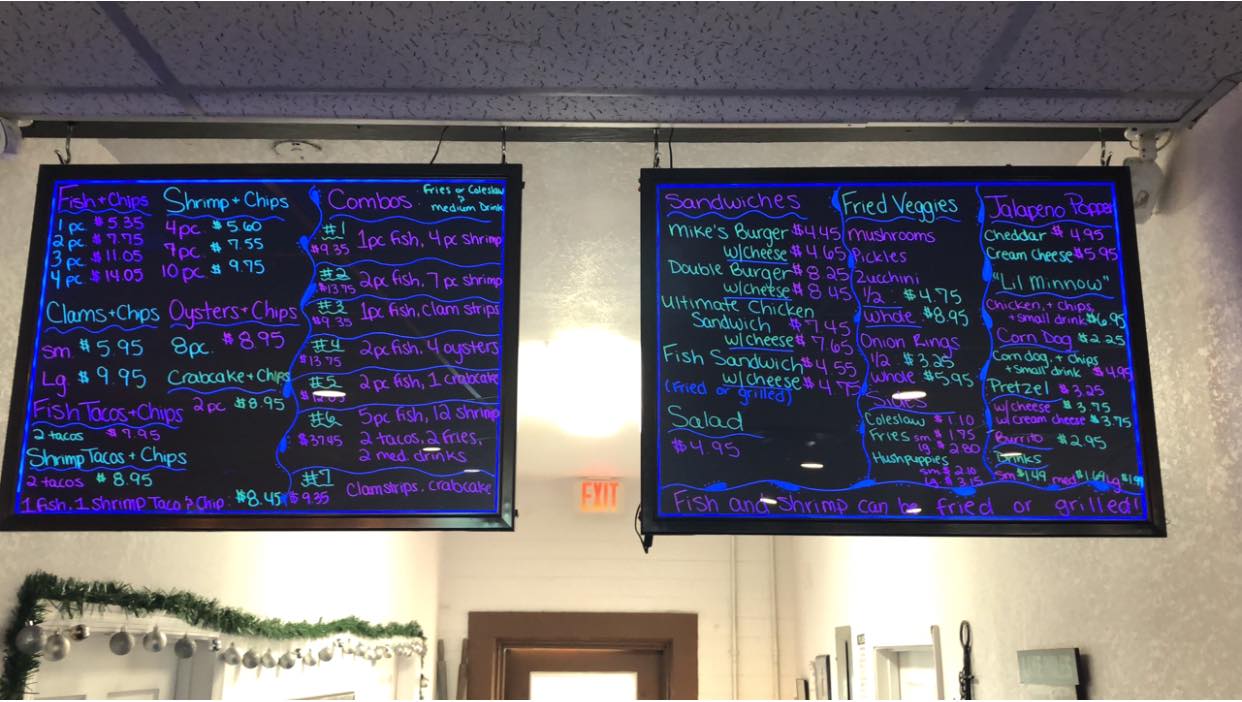 Fish + Chips
1 pc $5.35
2 pc $7.75
3 pc $11.05
4 pc $14.05
Shrimp + Chips
4 pc. $5.60
7 pc. $7.55
10 pc. $9.75
Clams + Chips
Sm. $5.95
Lg. $9.95
Oysters + Chips
8 pc. $8.95
Crabcake + Chips
2 pc $8.95
Fish Tacos + Chips
2 tacos $7.95
Shrimp Tacos + Chips
2 tacos $8.95
1 Fish, 1 Shrimp Taco & Chip $8.45
Combos
Fries or Coleslaw
&
medium Drink
#1
$9.35 1pc fish, 4 pc shrimp
#2
$13.75 2pc fish, 7 pc shrimp
#3
$9.35 1pc fish, clam strips
#4
$13.75 2pc fish, 4 oysters
#5
2 pc fish, 1 crabcake
#6
5pc fish, 12 shrimp
$37.45 2 tacos, 2 fries,
2 med. drinks
#7
$9.35 Clamstrips, crabcake
EXIT
Sandwiches
Mike's Burger $4.45
w/cheese $4.65
Double Burger $8.25
w/cheese $8.45
Ultimate Chicken
Sandwich $7.45
w/cheese $7.65
Fish Sandwich $4.55
w/cheese $4.75
(Fried or grilled)
Salad
$4.95
Fried Veggies
Mushrooms
Pickles
Zucchini
1/2 $4.75
Whole $8.95
Onion Rings
1/2 $3.25
Whole $5.95
Sides
Coleslaw $1.10
Fries sm $1.75
lg $2.80
Hushpuppies
sm $2.10
lg. $3.15
Jalapeno Popper
Cheddar $4.95
Cream Cheese $5.95
"Lil Minnow"
Chicken, + Chips
+ small drink $6.95
Corn Dog $2.25
Corn dog, + chips
+ small drink $4.95
Pretzel $3.25
w/cheese $3.75
w/ cream cheese $3.75
Burrito $2.95
Drinks
sm $1.49 med $1.69 Lg $1.99
Fish and Shrimp can be fried or grilled!